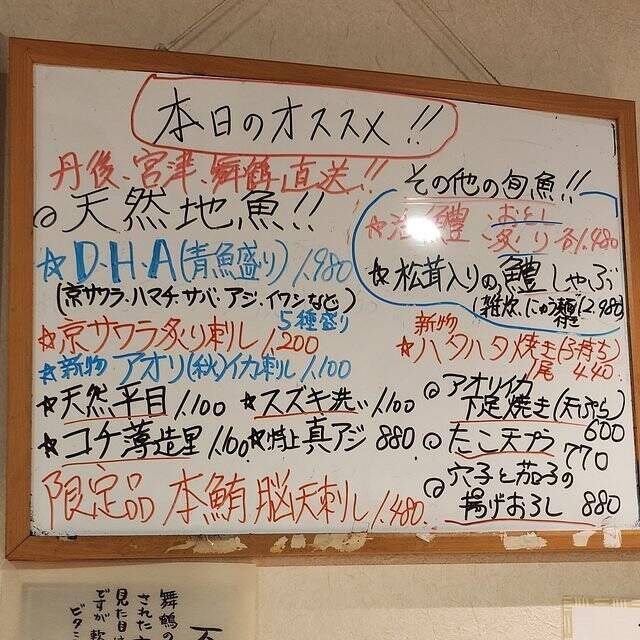 本日のオススメ!!
丹後、宮津、舞鶴直送!!
天然地魚!!
☆D・H・A(青魚盛り) 1,980
(京サワラ・ハマチ・サバ・アジ・イワシなど)
5種盛り
☆京サワラ炙り刺し 1,200
☆新物 アオリ(秋)イカ刺し 1,100
☆天然平目 1,100
☆スズキ洗い 1,100
☆コチ薄造里 1,100
☆特上真アジ 880
限定品 本鮪脳天刺し 1,480.
その他の旬魚!!
☆活 鱧 おとし
炙り 各1,480
☆松茸入りの鱧しゃぶ
(雑炊、にゅう麺付き) 2,980
新物
☆ハタハタ焼き(子持ち)
1尾 440.
アオリイカ
下足焼き(天ぷら)
600
たこ天プラ
770
穴子と茄子の
揚げおろし 880
舞鶴の
された
見た目は
ですが軟
ビタミ